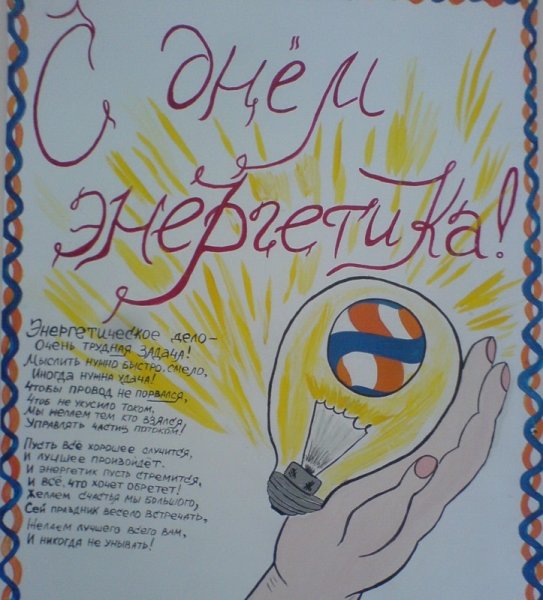 С днём
энергетика!
Энергетическое дело –
Очень трудная задача!
Мыслить нужно быстро, смело,
Иногда нужна удача!
Чтобы провод не порвался,
Чтоб не укусило током,
Мы желаем тем кто взялся
Управлять частиц потоком!
Пусть всё хорошее случится,
И лучшее произойдёт.
И энергетик пусть стремится,
И всё, что хочет обретет!
Желаем счастья мы большого,
Сей праздник весело встречать,
Желаем лучшего всего вам,
И никогда не унывать!